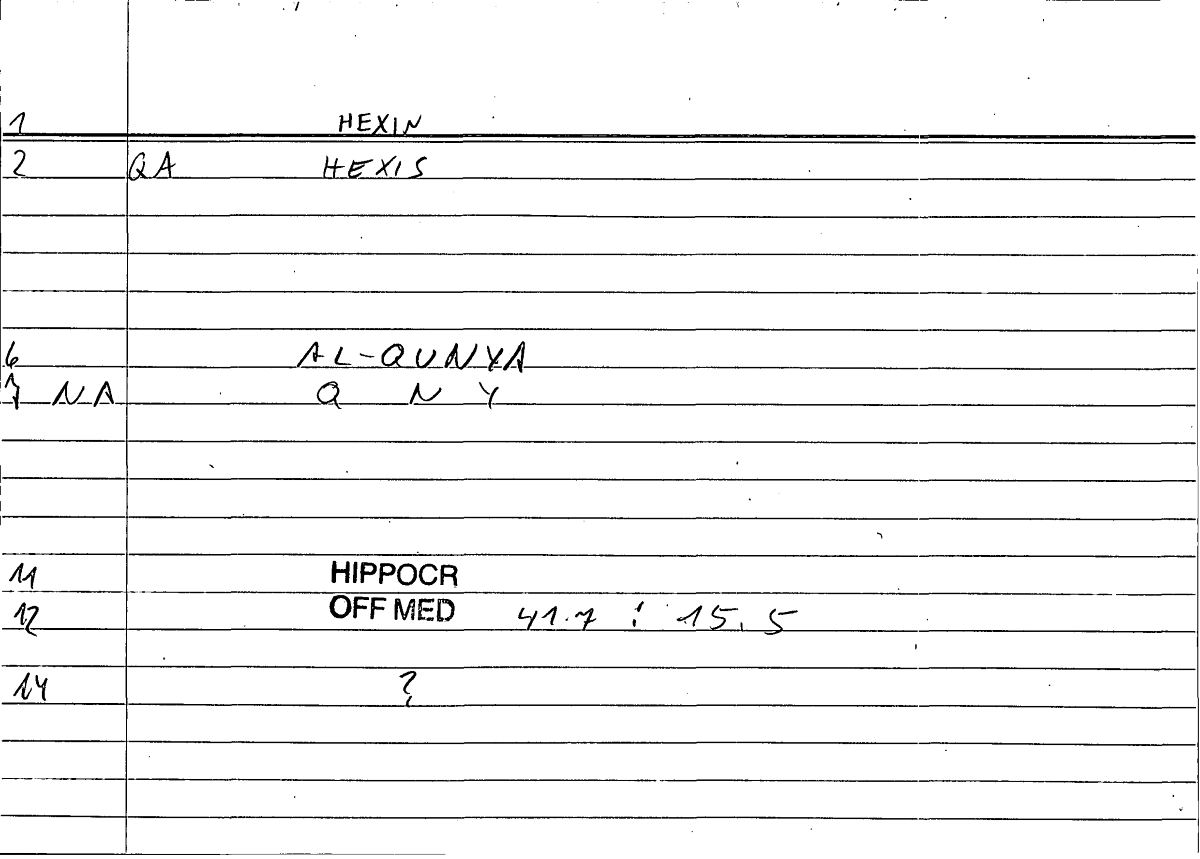 1 HEXIN
2 QA HEXIS
6 AL-QUNYA
7 NA Q N Y
11 HIPPOCR
12 OFF MED 41.7 : 15.5
14 ?